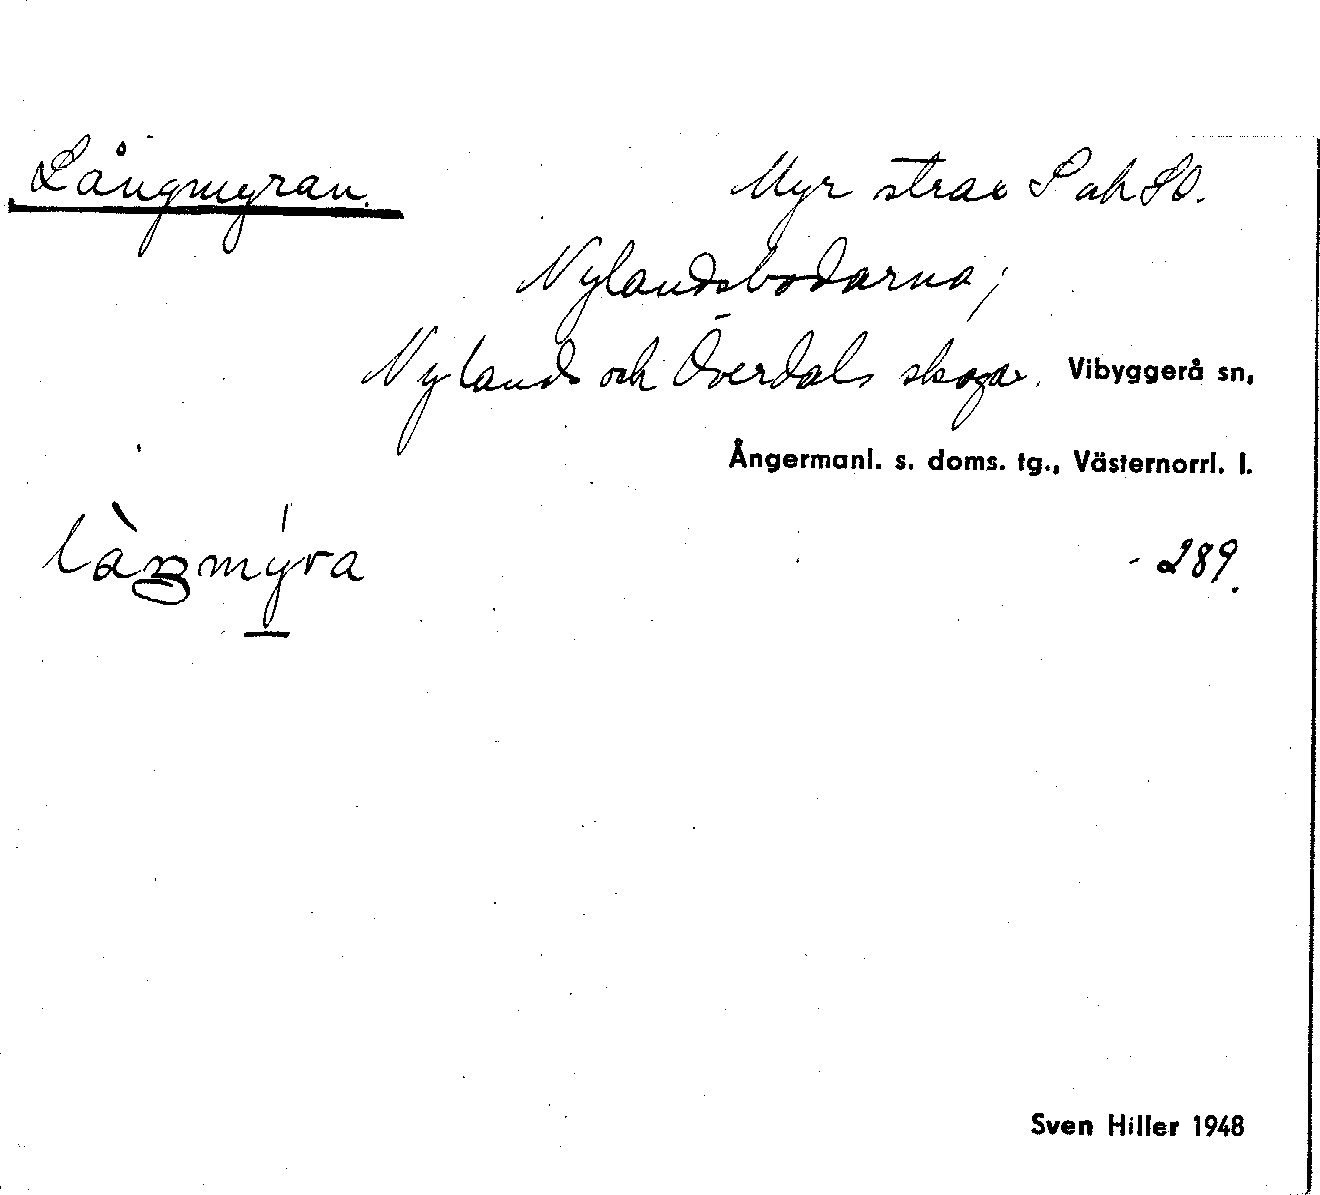 Långmyran.
Myr strax S och SO.
Nylandsbodarna;
Nylands och Överdals skogar. Vibyggerå sn,
Ångermanl. s. doms. tg., Västernorrl. l.
- 289.
Sven Hiller 1948